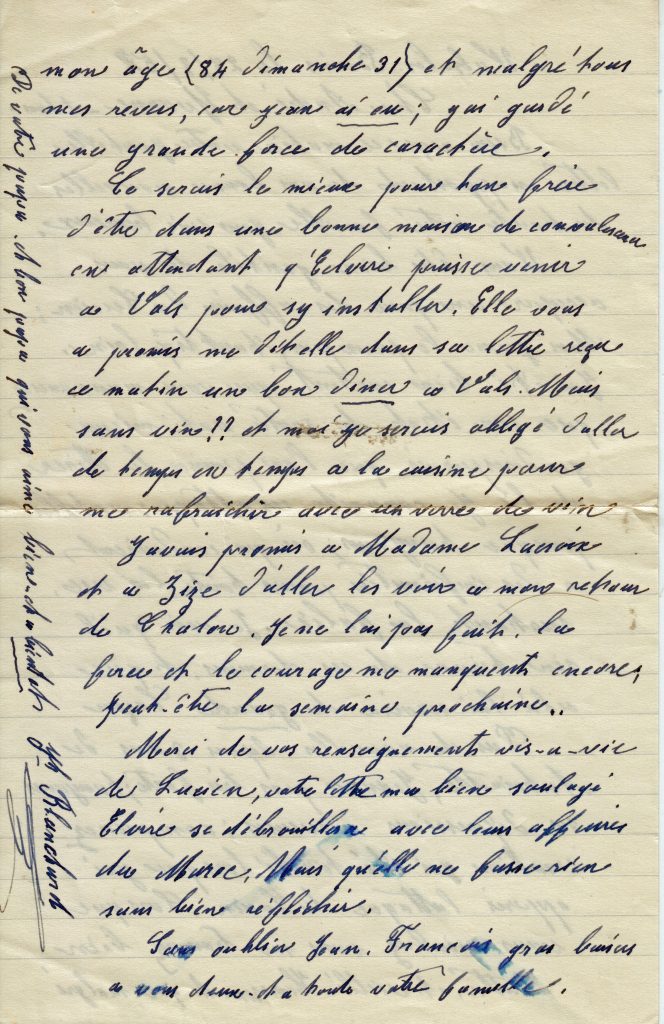 mon âge (84 dimanche 31) et malgré tous
mes revers, car jean ai eu ; jai gardé
une grande force de caractère.
Ce serais le mieux pour ton frère
d'être dans une bonne maison de convalescence
en attendant q'Elvire puisse venir
a Vals pour sy installer. Elle vous
a promis me dit elle dans sa lettre reçu
ce matin un bon diner a Vals. Mais
sans vin ?? et moi je serais obligé d'aller
de temps en temps a la cuisine pour
me rafraichir avec un verre de vin
J'avais promis a Madame Lacroix
et a Zize d'aller les voir a mon retour
de Chalon. Je ne l'ai pas fait. la
force et le courage me manquent encore,
peut-être la semaine prochaine..
Merci de vos renseignements vis-a-vie
de Lucien, votre lettre ma bien soulagé
Elvire se débrouillera avec leurs affaires
du Maroc. Mais qu'elle ne fasse rien
sans bien réfléchir.
Sans oublier Jean. François gros baisers
a vous deux et a toute votre famille.
De votre papa et bon papa qui vous aime bien et a bientot
Jh Blanchard